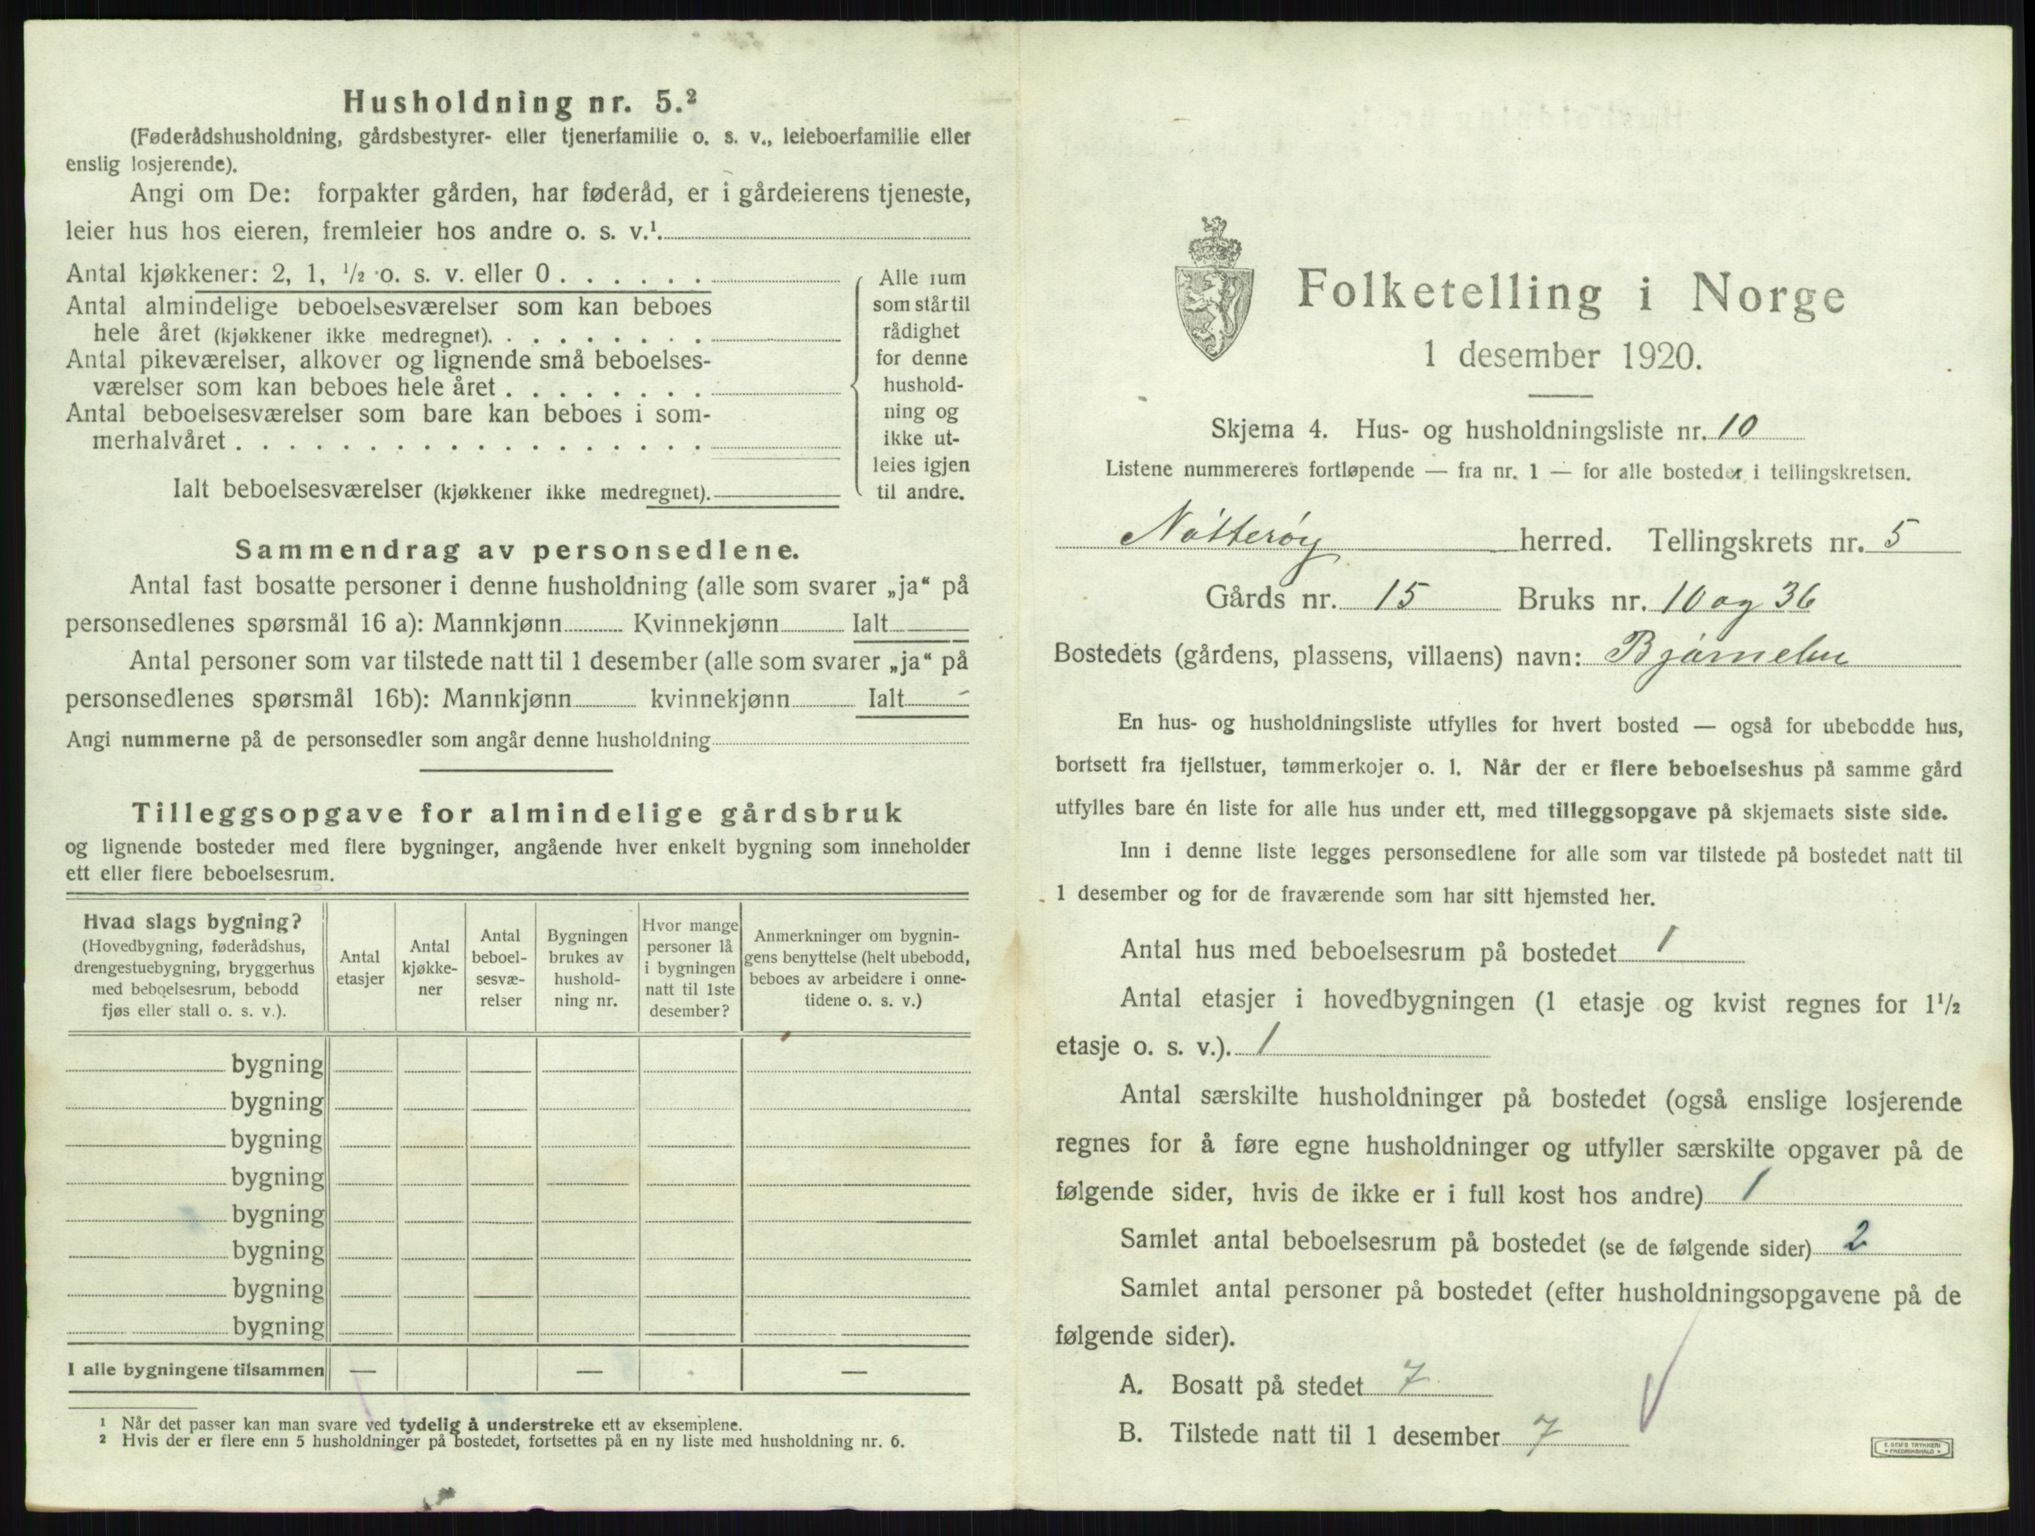 Husholdning nr. 5.²
(Føderådshusholdning, gårdsbestyrer- eller tjenerfamilie o. s. v., leieboerfamilie eller
enslig losjerende).
Angi om De: forpakter gården, har føderåd, er i gårdeierens tjeneste,
leier hus hos eieren, fremleier hos andre o. s. v.¹
Antal kjøkkener: 2, 1, ½ o. s. v. eller 0 . . . . . .
Antal almindelige beboelsesværelser som kan beboes
hele året (kjøkkener ikke medregnet). . . . . . . . .
Antal pikeværelser, alkover og lignende små beboelses-
værelser som kan beboes hele året . . . . . . . .
Antal beboelsesværelser som bare kan beboes i som-
merhalvåret . . . . . . . . . . . . . . . . . .
Ialt beboelsesværelser (kjøkkener ikke medregnet).
Alle rum
som står til
rådighet
for denne
hushold-
ning og
ikke ut-
leies igjen
til andre.
Sammendrag av personsedlene.
Antal fast bosatte personer i denne husholdning (alle som svarer „ja“ på
personsedlenes spørsmål 16 a): Mannkjønn Kvinnekjønn Ialt
Antal personer som var tilstede natt til 1 desember (alle som svarer „ja“ på
personsedlenes spørsmål 16b): Mannkjønn kvinnekjønn Ialt
Angi nummerne på de personsedler som angår denne husholdning
Tilleggsopgave for almindelige gårdsbruk
og lignende bosteder med flere bygninger, angående hver enkelt bygning som inneholder
ett eller flere beboelsesrum.
Hvad slags bygning?
(Hovedbygning, føderådshus,
drengestuebygning, bryggerhus
med beboelsesrum, bebodd
fjøs eller stall o. s. v.).
Antal
etasjer
Antal
kjøkke-
ner
Antal
beboel-
sesvæ-
relser
Bygningen
brukes av
hushold-
ning nr.
Hvor mange
personer lå
i bygningen
natt til 1ste
desember?
Anmerkninger om bygnin-
gens benyttelse (helt ubebodd,
beboes av arbeidere i onne-
tidene o. s. v.)
bygning
bygning
bygning
bygning
bygning
bygning
bygning
bygning
I alle bygningene tilsammen — — —
¹ Når det passer kan man svare ved tydelig å understreke ett av eksemplene.
² Hvis der er flere enn 5 husholdninger på bostedet, fortsettes på en ny liste med husholdning nr. 6.
Folketelling i Norge
1 desember 1920.
Skjema 4. Hus- og husholdningsliste nr. 10
Listene nummereres fortløpende — fra nr. 1 — for alle bosteder i tellingskretsen.
Nøtterøy herred. Tellingskrets nr. 5
Gårds nr. 15 Bruks nr. 10 og 36
Bostedets (gårdens, plassens, villaens) navn: Bjørnebu
En hus- og husholdningsliste utfylles for hvert bosted — også for ubebodde hus,
bortsett fra fjellstuer, tømmerkojer o. l. Når der er flere beboelseshus på samme gård
utfylles bare én liste for alle hus under ett, med tilleggsopgave på skjemaets siste side.
Inn i denne liste legges personsedlene for alle som var tilstede på bostedet natt til
1 desember og for de fraværende som har sitt hjemsted her.
Antal hus med beboelsesrum på bostedet 1
Antal etasjer i hovedbygningen (1 etasje og kvist regnes for 1½
etasje o. s. v.). 1
Antal særskilte husholdninger på bostedet (også enslige losjerende
regnes for å føre egne husholdninger og utfyller særskilte opgaver på de
følgende sider, hvis de ikke er i full kost hos andre) 1
Samlet antal beboelsesrum på bostedet (se de følgende sider) 2
Samlet antal personer på bostedet (efter husholdningsopgavene på de
følgende sider).
A. Bosatt på stedet 7
B. Tilstede natt til 1 desember 7